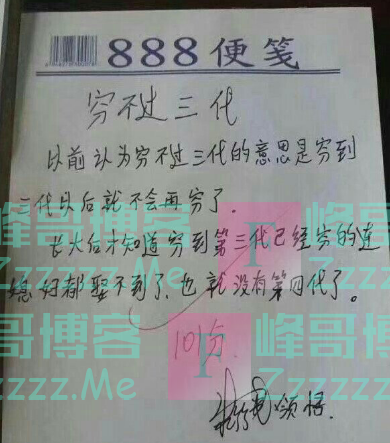 888便笺
穷不过三代
以前认为穷不过三代的意思是穷到
三代以后就不会再穷了.
长大后才知道穷到第三代已经穷的连
媳妇都娶不到了,也就没有第四代了。
101分.
领悟.
峰哥博客
7zzzzz.Me
峰哥博客
7zzzzz.Me